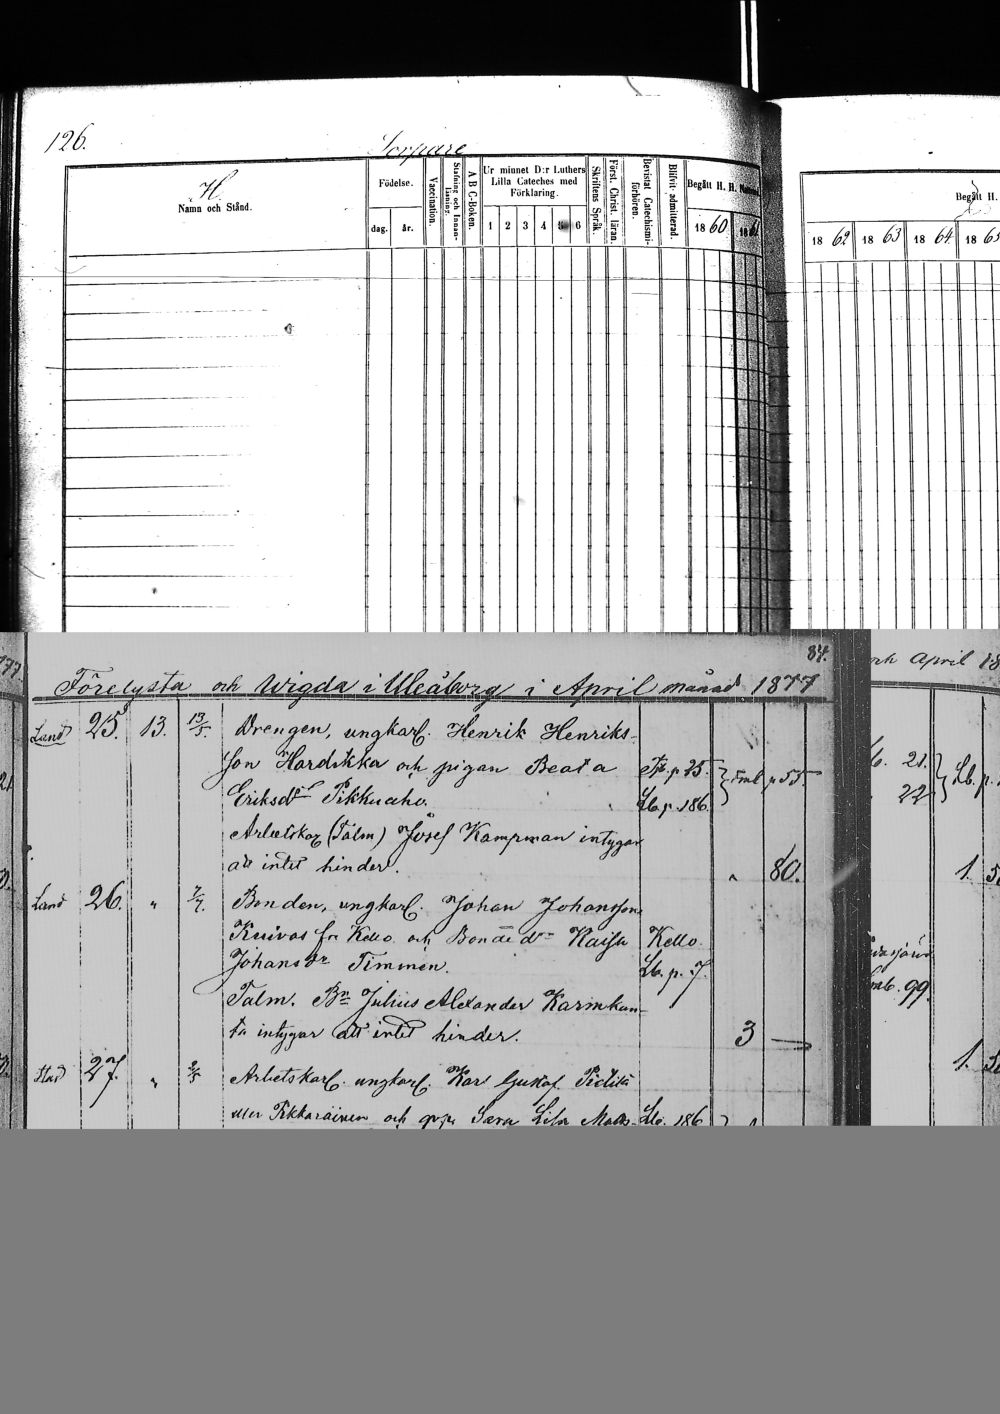 126.
Sorpare
H.
Namn och Stånd.
Födelse.
dag. år.
Vaccination.
Stafning och Innan-läsning.
A B C-Boken.
Ur minnet D:r Luthers
Lilla Cateches med
Förklaring.
1 2 3 4 5 6
Skriftens Språk.
Först. Christ. läran.
Bevistat Catechismi-förhören.
Blifvit admitterad.
Begått H. H. Nattvard
1860 1861
Begått H.
1862 1863 1864 1865
34.
Förelysta och Wigda i Uleåborg i April månad 1877
Land 25. 13. 13/5. Drengen, ungkarl. Henrik Henriks-
son Hardikka och pigan Beata Tb. p 35. Emb p 55
Eriksdr Pikkuaho. Lb. p. 186.
Arbetskar (Talm) Josef Kampman intygar
att intet hinder. " 80.
Land 26. " 7/7. Bonden, ungkarl. Johan Johansson
Kuivas fr Kello och Bonde dr Kaisa Kello.
Johansdr Timmen. Lb. p. 7.
Talm. Bn Julius Alexander Karmkun-
ta intygar att intet hinder. 3 —
Stad 27. " 2/5 Arbetskarl. ungkarl. Karl Gustaf Pietilä
eller Pikkaräinen och Sara Lisa Mats- Lb. 186
och April 18
21.
22
Lb. p.
1. 50
99.
1.